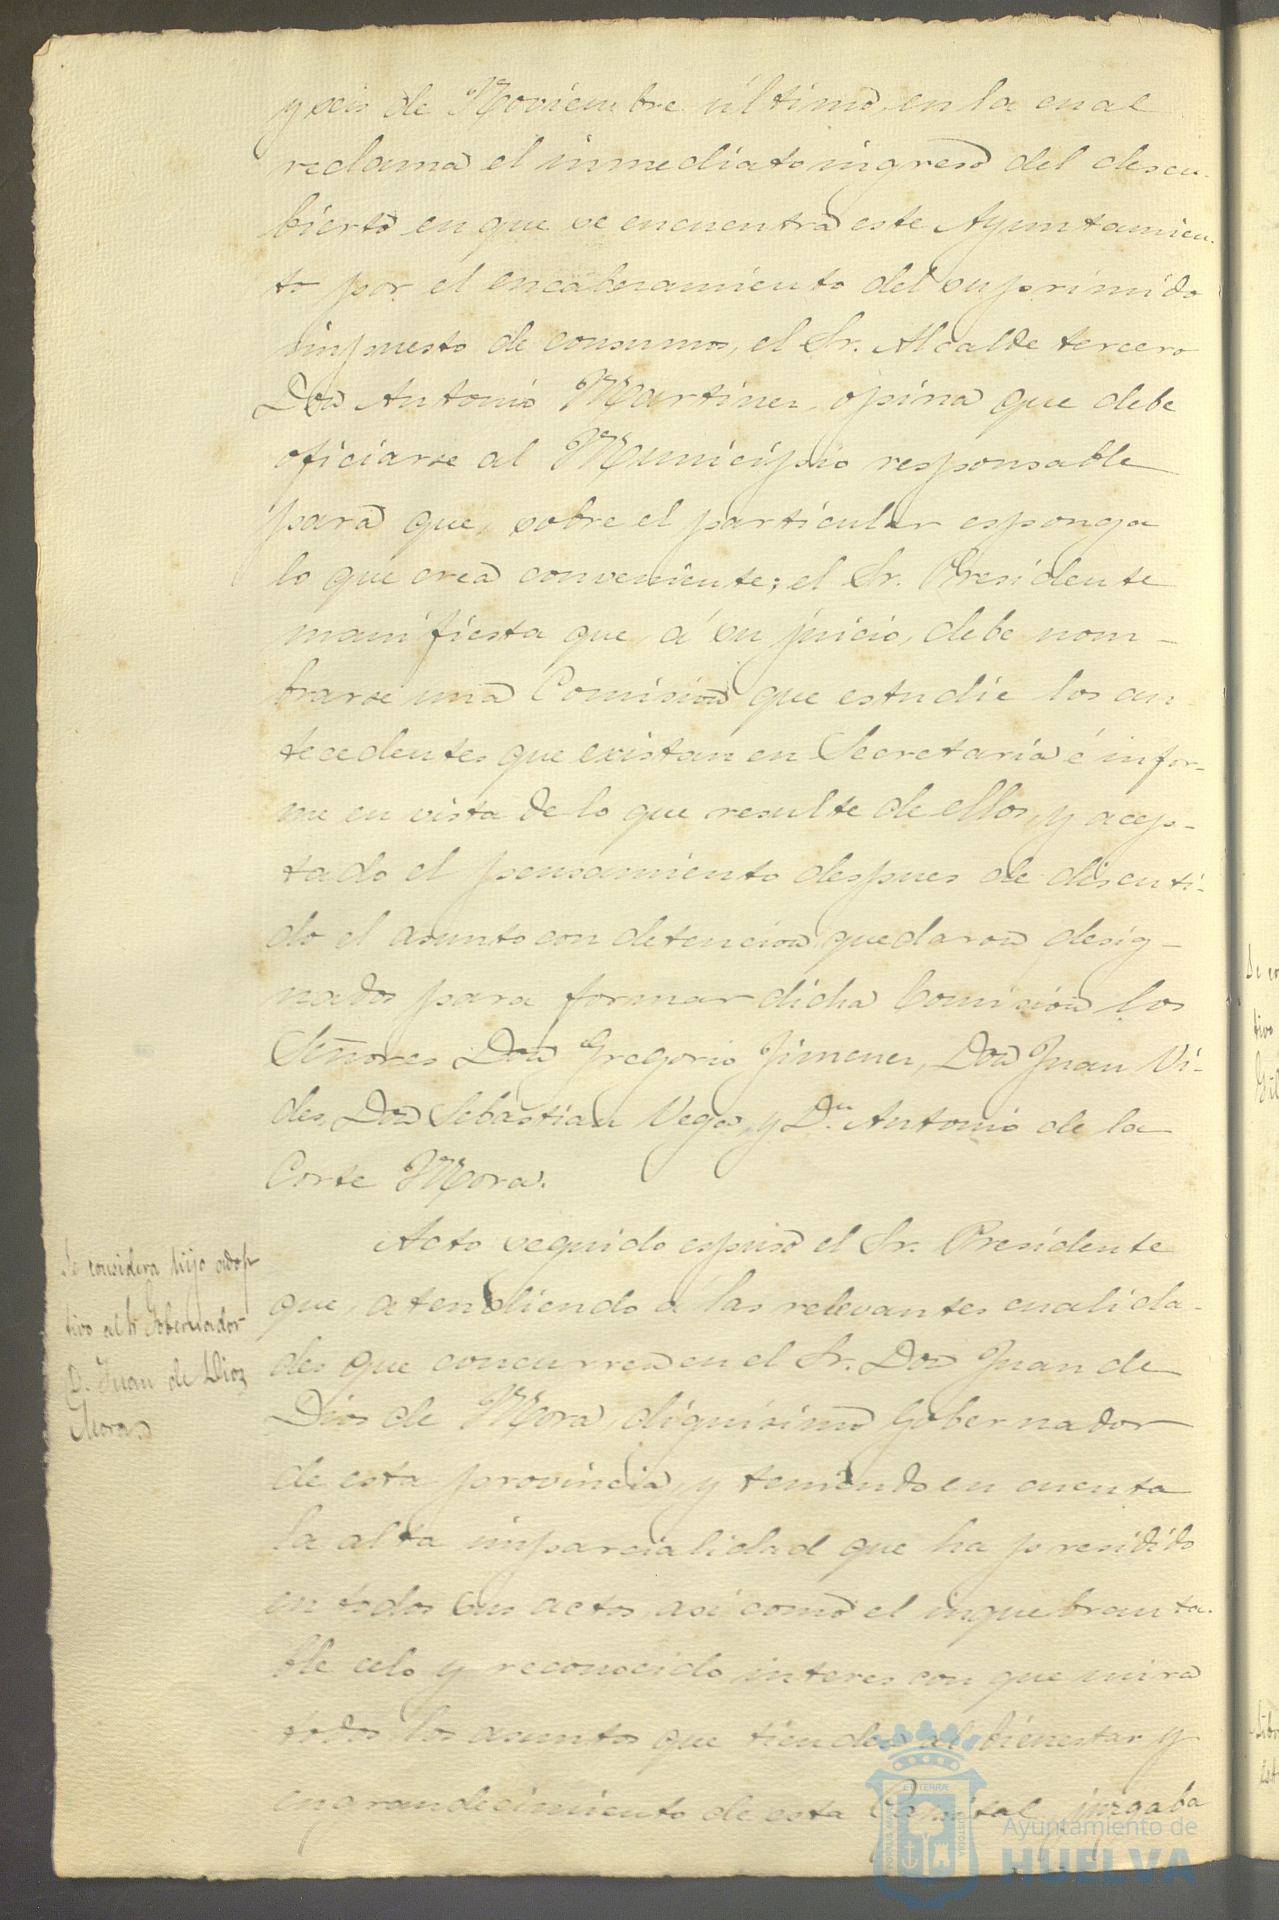 y seis de Noviembre último, en la cual
reclama el inmediato ingreso del descu-
bierto en que se encuentra este Ayuntamien-
to por el encabezamiento del suprimido
impuesto de consumos, el Sr. Alcalde tercero
Don Antonio Martinez, opina que debe
oficiarse al Municipio responsable
para que, sobre el particular esponga
lo que crea conveniente; el Sr. Presidente
manifiesta que, á su juicio, debe nom-
brarse una Comision que estudie los an
tecedentes que existan en Secretaría é infor-
me en vista de lo que resulte de ellos, y acep-
tado el pensamiento despues de discuti-
do el asunto con detencion, quedaron desig-
nados para formar dicha Comision los
Señores Don Gregorio Jimenez, Don Juan Vi-
des, Don Sebastian Vega, y Dn. Antonio de la
Corte Mora.
Se considera hijo adop
tivo al Sr Gobernador
D. Juan de Dioz
Mora
Acto seguido espuso el Sr. Presidente
que, atendiendo a las relevantes cualida-
des que concurren en el Sr. Don Juan de
Dios de Mora, dignísimo Gobernador
de esta provincia, y teniendo en cuenta
la alta imparcialidad que ha presidido
en todos sus actos, así como el inquebranta-
ble celo y reconocido interes con que mira
todos los asuntos que tienden al bienestar y
engrandecimiento de esta Capital, juzgaba
Ayuntamiento de
HUELVA